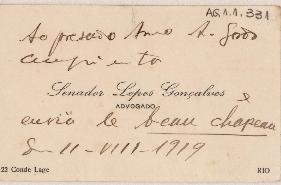 AG.1.1.331
Ao presado Amo A.
cumprimenta
Senador Lopes Gonçalves
ADVOGADO
e
envia le beau chapeau
11-VIII-1919
22 Conde Lage RIO